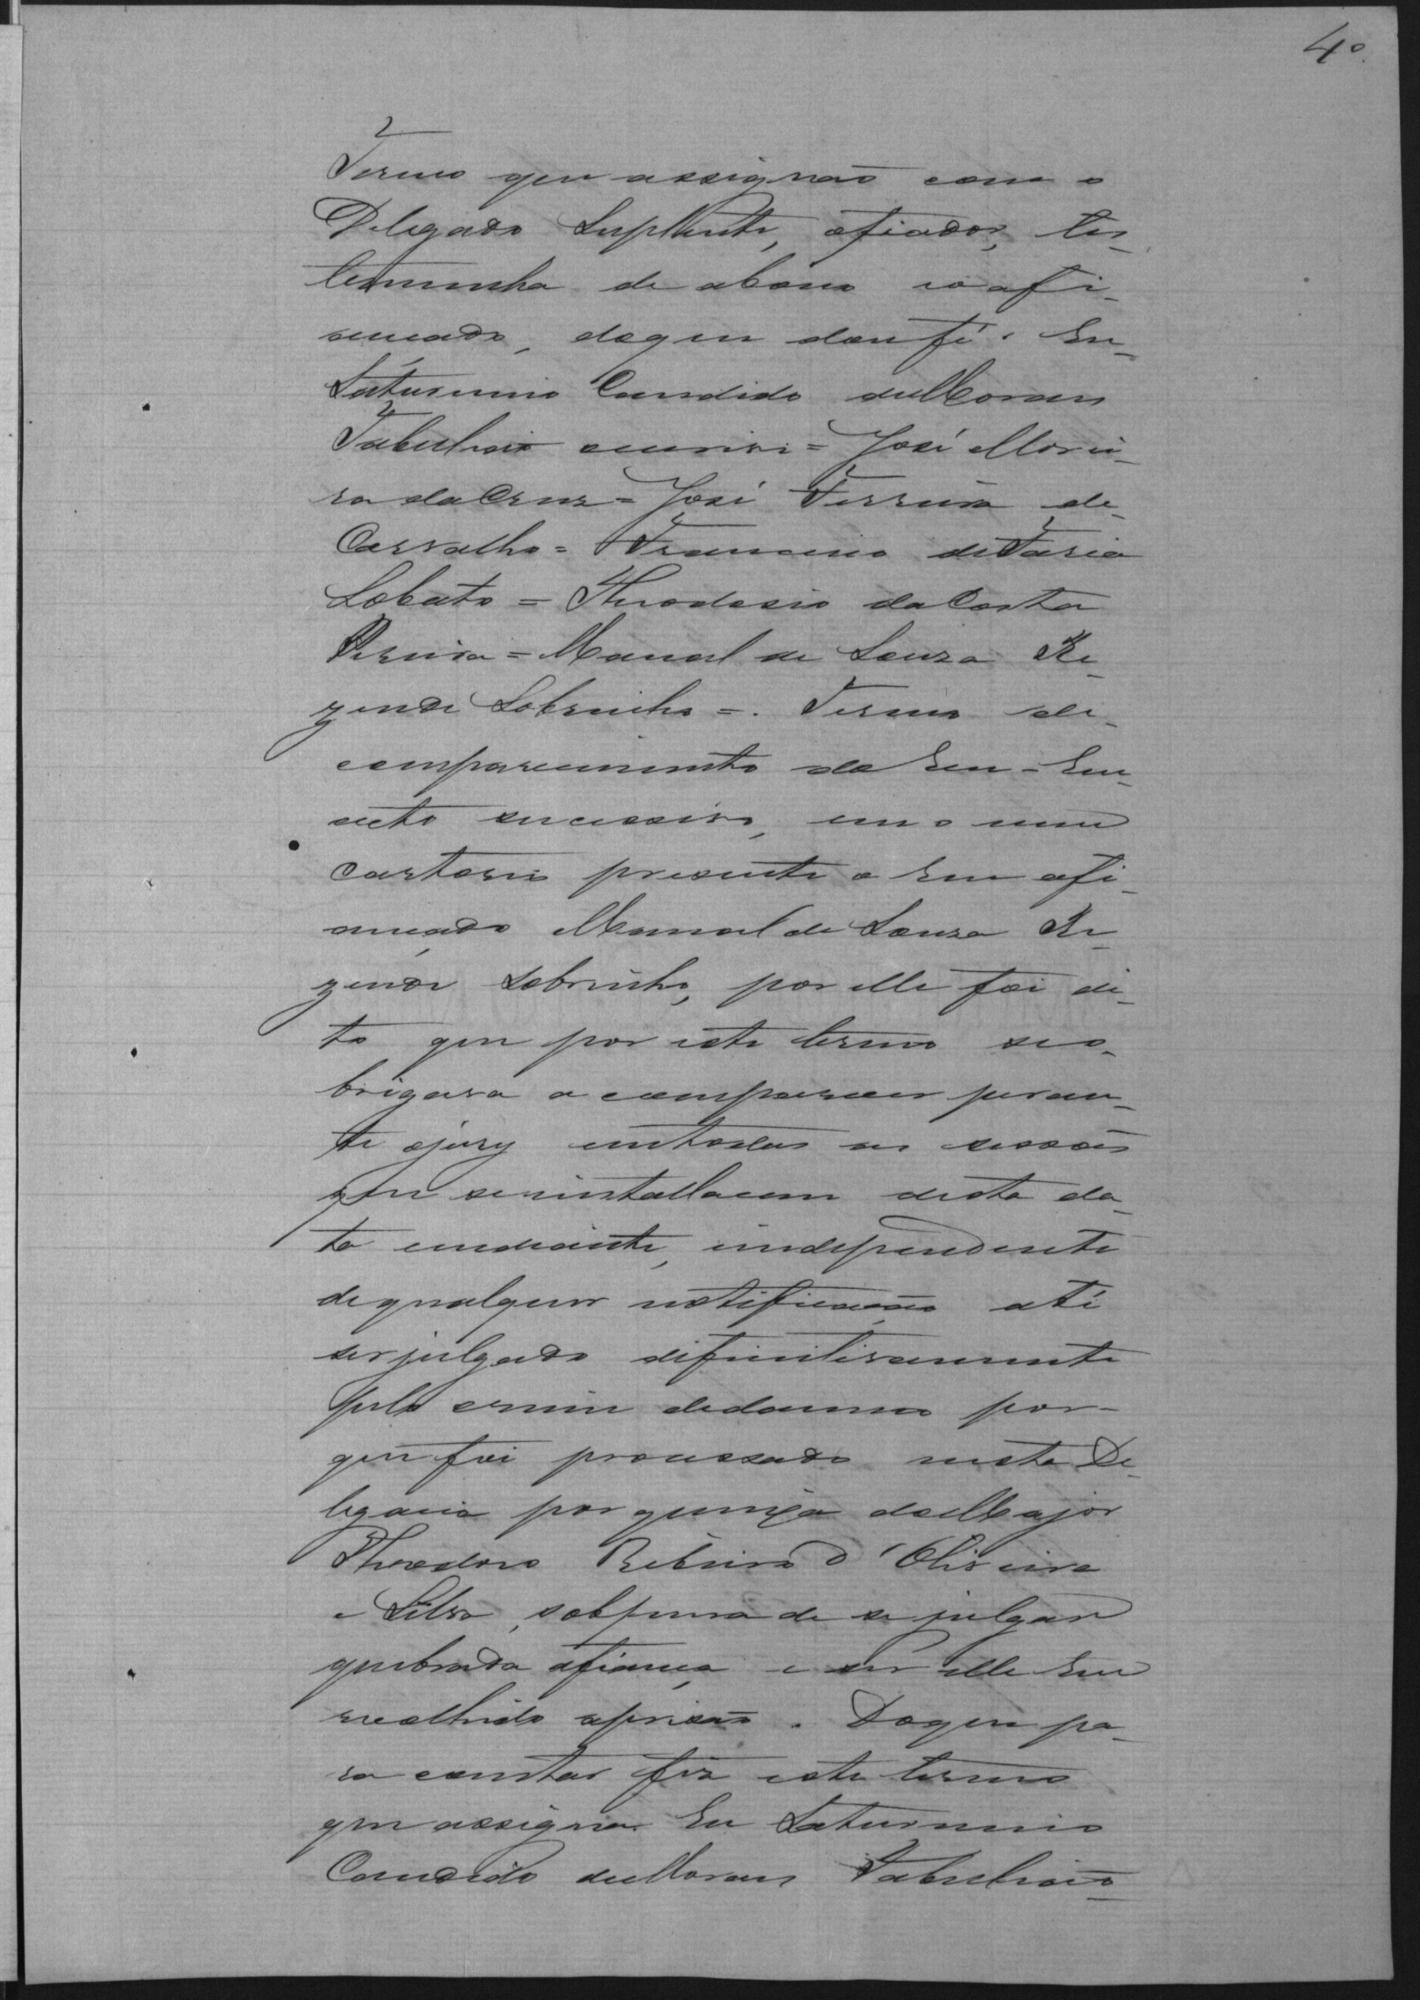 4º
Termo que assignão com o
Delegado Suplente, afiador, tes-
temunha de abono e o afi-
ançado, do que dou fé. Eu
Saturnino Candido de Moraes
Tabelião escrivi = José Morei-
ra da Cruz = José Ferreira de
Carvalho = Francisco de Faria
Lobato = Theodosio da Costa
Pereira = Manoel de Souza Re-
zende Sobrinho =. Termo de
comparecimento do Reu - Em
acto sucessivo, em o meu
cartorio presente o Reu afi-
ançado Manoel de Souza Re-
zende Sobrinho, por elle foi di-
to que por este termo se o-
brigava a comparecer peran-
te o jury em todas as sessões
que se installarem desta da-
ta em diante, independente
de qualquer notificação até
ser julgado difinitivamente
pelo crime de damno por-
que foi processado nesta De-
legacia por queixa do Major
Theodoro Ribeiro d'Oliveira
e Silva, sob pena de se julgar
quebrada a fiança e ser elle Reu
recolhido a prisão. Do que pa-
ra constar fiz este termo
que assigna. Eu Saturnino
Candido de Moraes Tabelião